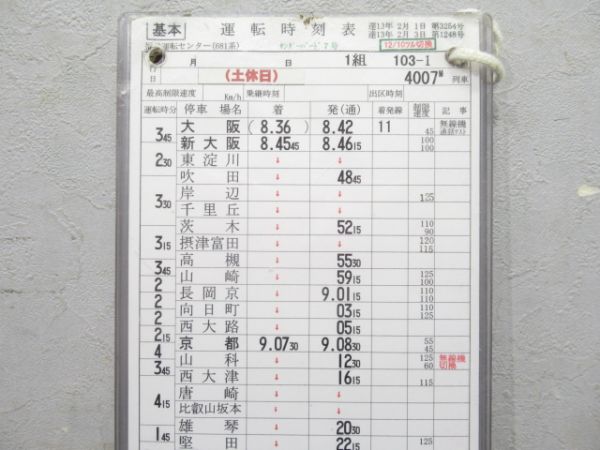 基本 運転時刻表 達13年 2月 1日 第3254号
達13年 2月 3日 第1248号
運転センター(681系) サンダーバード7号 12/10ツル切換
月 日 1組 103-1
行 日 (土休日) 4007M 列車
最高制限速度 Km/h 乗継時刻 出区時刻
運転時分 停車場名 着 発(通) 着発線 制限速度 記事
大阪 (8.36) 8.42 11 45 無線機
345 新大阪 8.4545 8.4615 100 100
東淀川 ↓ ↓
230 吹田 ↓ 4845
岸辺 ↓ ↓ 125
330 千里丘 ↓ ↓
茨木 ↓ 5215 110 90
315 摂津富田 ↓ ↓ 120 115
高槻 ↓ 5530
345 山崎 ↓ 5915 125 100
2 長岡京 ↓ 9.0115 110 110
2 向日町 ↓ 0315 110 125
2 西大路 ↓ 0515
215 京都 9.0730 9.0830 55 45
4 山科 ↓ 1230 125 60 無線機切換
345 西大津 ↓ 1615 115
唐崎 ↓ ↓
415 比叡山坂本 ↓ ↓
雄琴 ↓ 2030
145 堅田 ↓ 2215 125